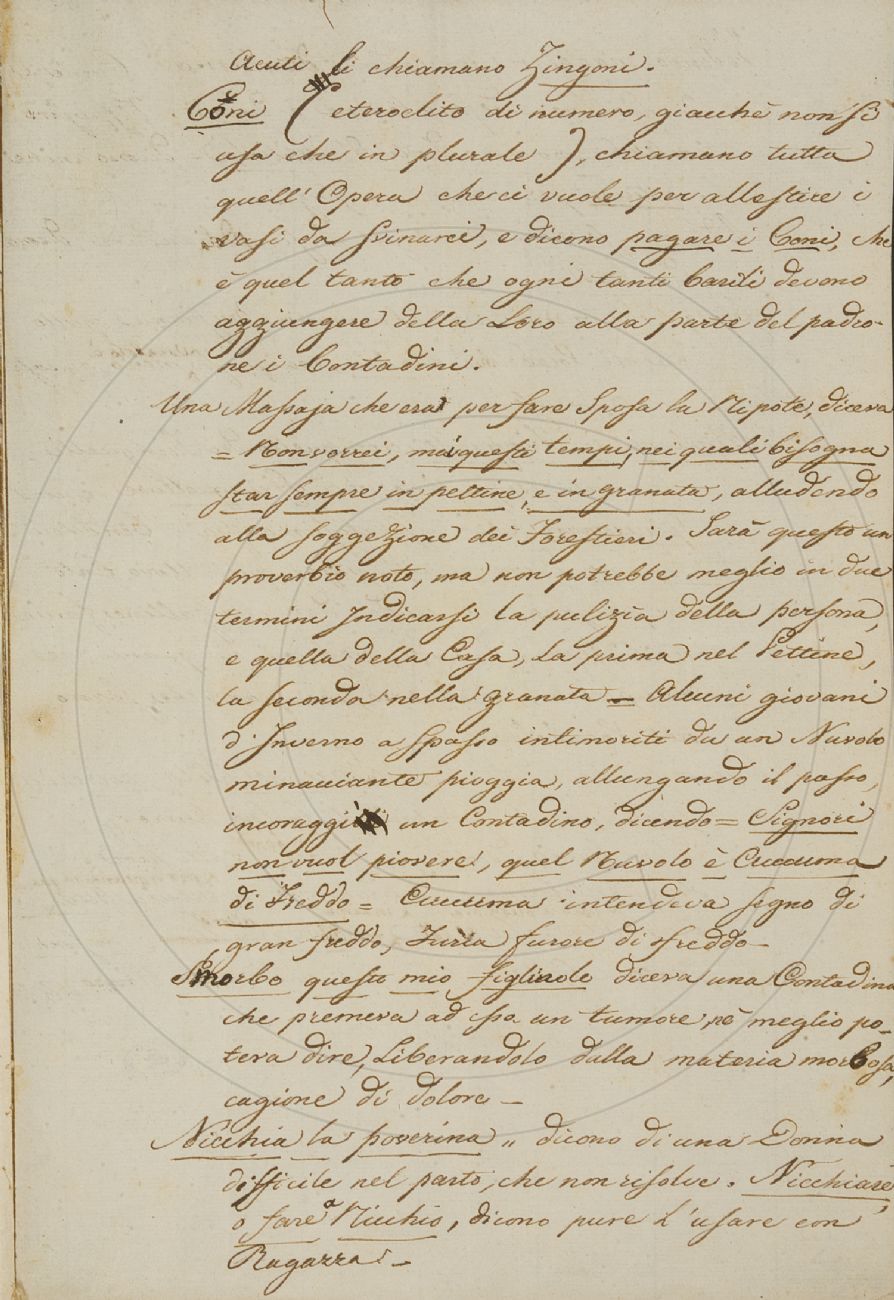 Acuti li chiamano Zingoni.
Cŏni (eteroclito di numero, giacchè non si
usa che in plurale), chiamano tutta
quell' Opera che ci vuole per allestire i
vasi da svinarci, e dicono pagare i Coni, che
è quel tanto che ogni tanti barili devono
aggiungere della Loro alla parte del padro-
ne i Contadini.
Una Massaja che era per fare Sposa la Nipote, diceva
= Non vorrei, ma questi tempi, nei quali bisogna
star sempre in pettine, e in granata, alludendo
alla soggezione dei Forestieri. Sarà questo un
proverbio noto, ma non potrebbe meglio in due
termini Indicarsi la pulizia della persona,
e quella della Casa, La prima nel Pettine,
la seconda nella granata = Alcuni giovani
d'Inverno a spasso intimoriti da un Nuvolo
minacciante pioggia, allungando il passo,
un Contadino, dicendo = Signori
non vuol piovere, quel Nuvolo è Cucuma
di Freddo = Cucuma intendeva segno di
gran freddo, furia furore di freddo -
Smorbo questo mio figliuolo diceva una Contadina
che premeva ad essa un tumore, nè meglio po-
teva dire, Liberandolo dalla materia morbosa,
cagione di dolore -
Nicchia la poverina „ dicono di una Donna
difficile nel parto, che non risolve. Nicchiare,
o fare a Nicchio, dicono pure l'usare con
Ragazza -